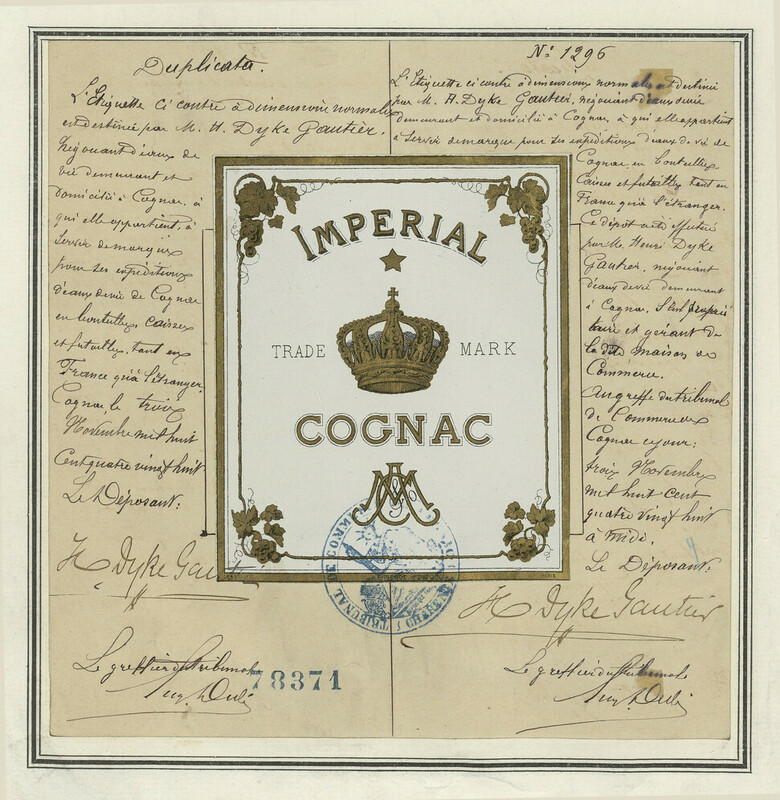 Duplicata.
L'Etiquette ci contre à dimensions normales
est destinée par M. H. Dyke Gautier,
Négociant d'eaux de
vie demeurant et
domicilié à Cognac, à
qui elle appartient, à
servir de marque
pour ses expéditions
d'eaux de vie de Cognac
en bouteilles, caisses
et futailles, tant en
France qu'à l'étranger.
Cognac, le trois
Novembre mil huit
Cent quatre vingt huit
Le Déposant:
H Dyke Gau
Le greffier du tribunal
78371
No 1296
L'Etiquette ci contre à dimensions normales est destinée
par M. H. Dyke Gautier, négociant d'eaux de vie
demeurant et domicilié à Cognac, à qui elle appartient
à servir de marque pour ses expéditions d'eaux de vie de
Cognac en bouteilles
Caisses et futailles tant en
France qu'à l'étranger.
Ce dépôt a été effectué
par M. Henri Dyke
Gautier, négociant
d'eaux de vie demeurant
à Cognac. Seul proprié
taire et gérant de
la dite maison de
Commerce.
Au greffe du tribunal
de Commerce de
Cognac ce jour:
trois Novembre
mil huit cent
quatre vingt huit
à midi.
Le Déposant:
H Dyke Gautier
Le greffier du tribunal
IMPERIAL
TRADE MARK
COGNAC
TRIBUNAL DE COMM